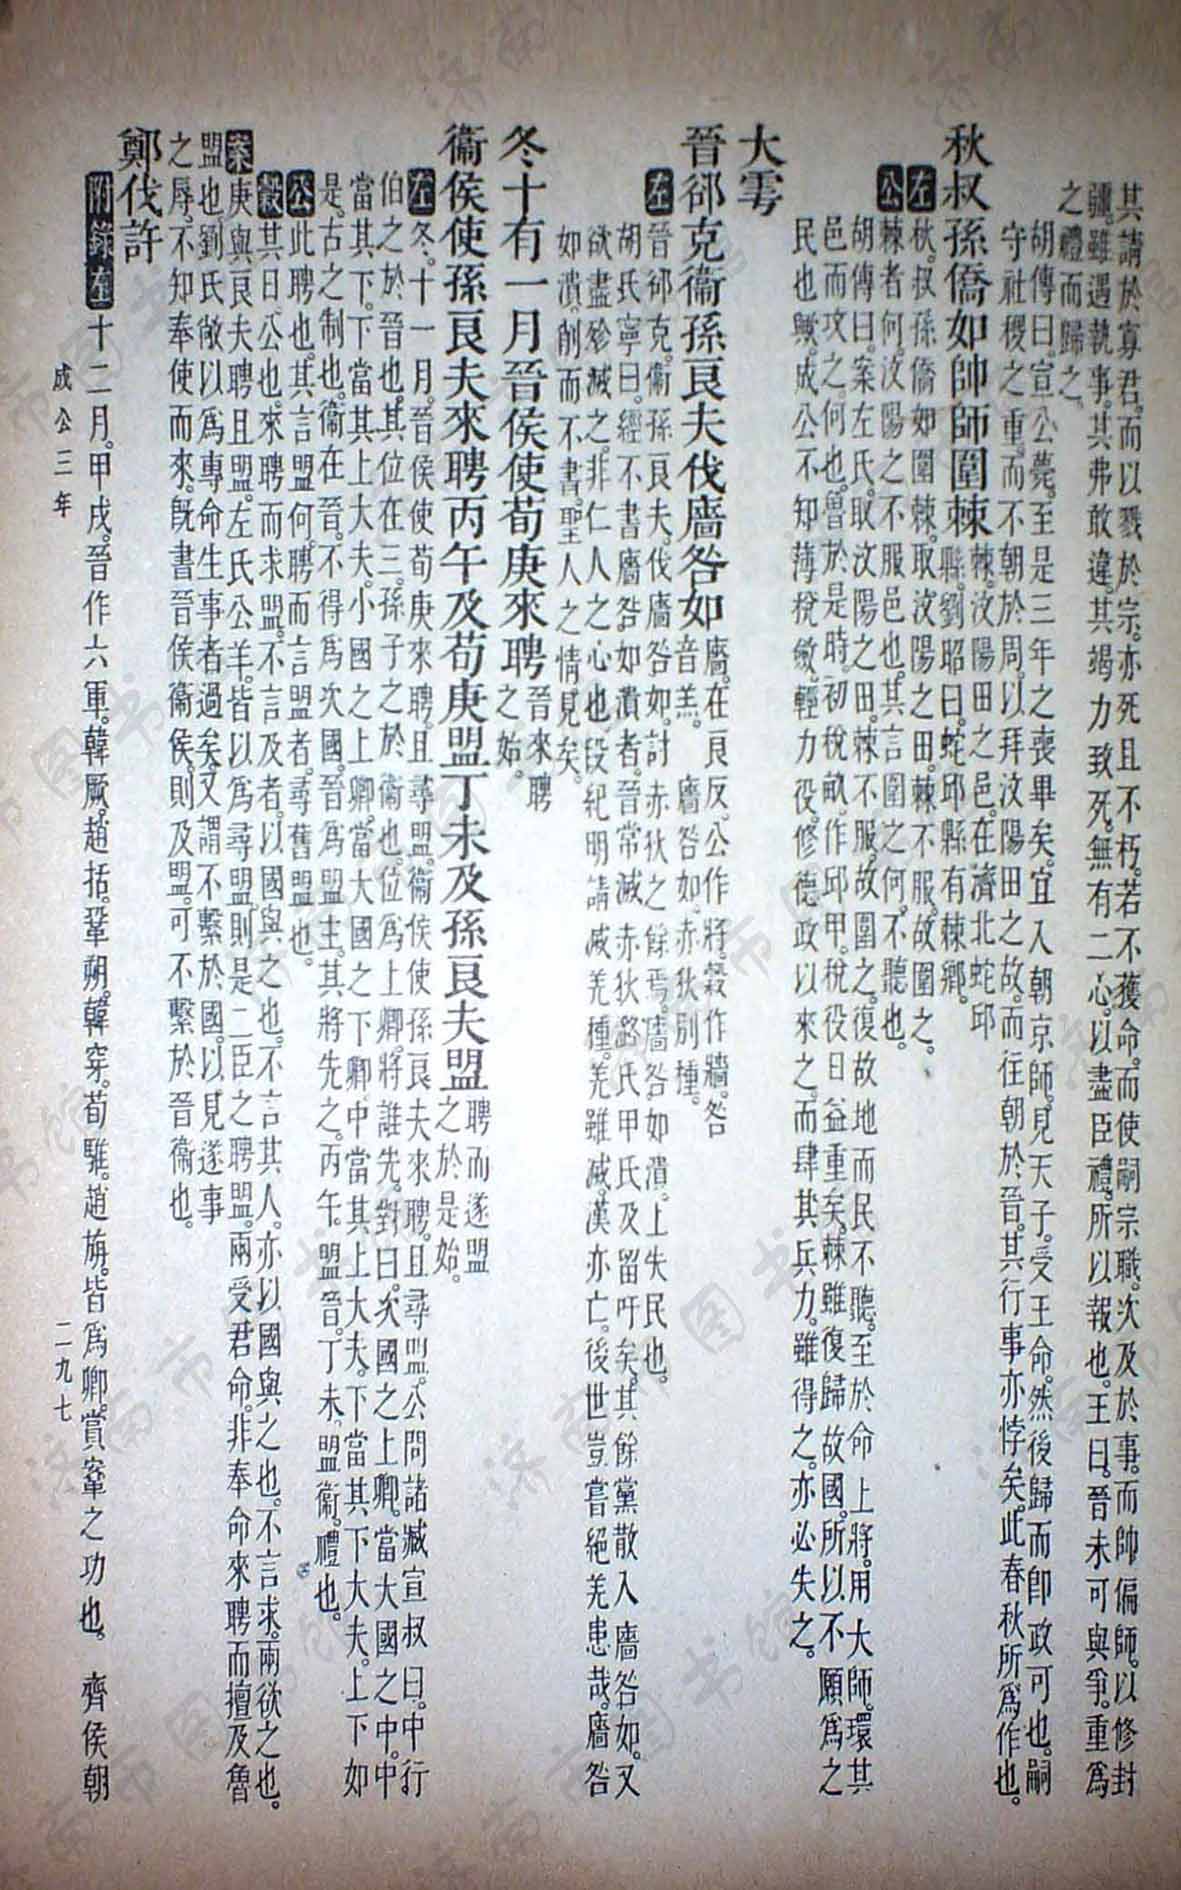 其請於寡君。而以戮於宗。亦死且不朽。若不獲命。而使嗣宗職。次及於事。而帥偏師。以修封
疆。雖遇執事。其弗敢違。其竭力致死。無有二心。以盡臣禮。所以報也。王曰。晉未可與爭。重爲
之禮而歸之。
胡傳曰。宣公薨。至是三年之喪畢矣。宜入朝京師。見天子。受王命。然後歸而卽政可也。嗣
守社稷之重。而不朝於周。以拜汶陽田之故。而往朝於晉。其行事亦悖矣。此春秋所爲作也。
秋叔孫僑如帥師圍棘 棘。汶陽田之邑。在濟北蛇邱
縣。劉昭曰。蛇邱縣有棘鄉。
左 秋。叔孫僑如圍棘。取汶陽之田。棘不服。故圍之。
公 棘者何。汶陽之不服邑也。其言圍之何。不聽也。
胡傳曰。案左氏。取汶陽之田。棘不服。故圍之。復故地而民不聽。至於命上將。用大師。環其
邑而攻之。何也。魯於是時。初稅畝。作邱甲。稅役日益重矣。棘雖復歸故國。所以不願爲之
民也歟。成公不知薄稅斂。輕力役。修德政以來之。而肆其兵力。雖得之。亦必失之。
大雩
晉郤克衞孫良夫伐廧咎如 廧。在良反。公作將。穀作牆。咎
音羔。 廧咎如。赤狄別種。
左 晉郤克。衞孫良夫。伐廧咎如。討赤狄之餘焉。廧咎如潰。上失民也。
胡氏寧曰。經不書廧咎如潰者。晉常滅赤狄潞氏甲氏及留吁矣。其餘黨散入廧咎如。又
欲盡殄滅之。非仁人之心也。段紀明請滅羌種。羌雖滅。漢亦亡。後世豈嘗絕羌患哉。廧咎
如潰。削而不書。聖人之情見矣。
冬十有一月晉侯使荀庚來聘 晉來聘
之始。
衞侯使孫良夫來聘丙午及荀庚盟丁未及孫良夫盟 聘而遂盟
之於是始。
左 冬。十一月。晉侯使荀庚來聘。且尋盟。衞侯使孫良夫來聘。且尋盟。公問諸臧宣叔曰。中行
伯之於晉也。其位在三。孫子之於衞也。位爲上卿。將誰先。對曰。次國之上卿。當大國之中。中
當其下。下當其上大夫。小國之上卿。當大國之下卿。中當其上大夫。下當其下大夫。上下如
是。古之制也。衞在晉。不得爲次國。晉爲盟主。其將先之。丙午。盟晉。丁未。盟衞。禮也。
公 此聘也。其言盟何。聘而言盟者。尋舊盟也。
穀 其日。公也。來聘而求盟。不言及者。以國與之也。不言其人。亦以國與之也。不言求。兩欲之也。
案 庚與良夫聘且盟。左氏公羊。皆以爲尋盟。則是二臣之聘盟。兩受君命。非奉命來聘而擅及魯
盟也。劉氏敞以爲專命生事者過矣。又謂不繫於國。以見遂事
之辱。不知奉使而來。旣書晉侯衞侯。則及盟。可不繫於晉衞也。
鄭伐許
附錄左 十二月。甲戌。晉作六軍。韓厥。趙括。鞏朔。韓穿。荀騅。趙旃。皆爲卿。賞鞌之功也。 齊侯朝
成公三年
二九七
济南市图书馆